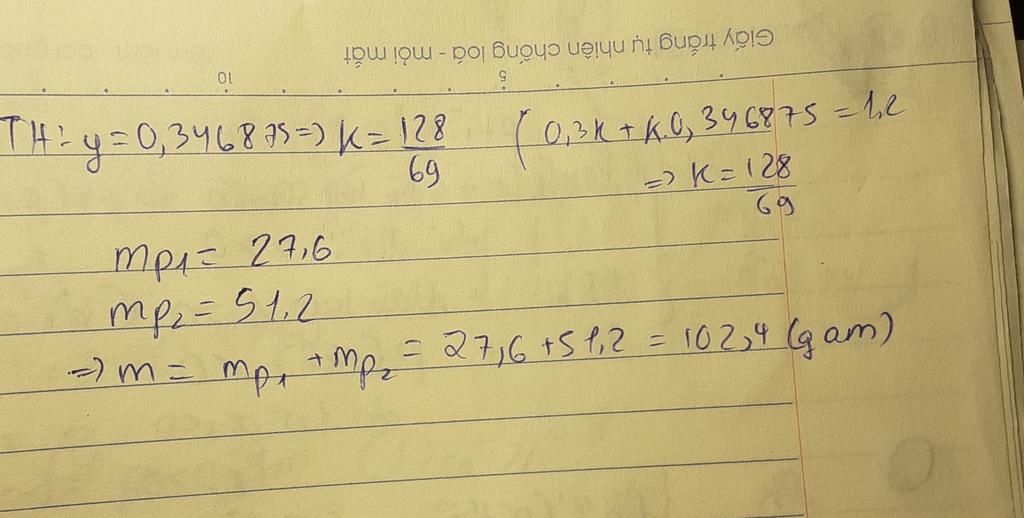 Giấy trắng tự nhiên chống loá - mỏi mắt
10 5
TH: y = 0,346875 => k = 128/69 ( 0,3k + k.0,346875 = 1,2
=> k = 128/69
mp1 = 27,6
mp2 = 51,2
=> m = mp1 + mp2 = 27,6 + 51,2 = 102,4 (gam)